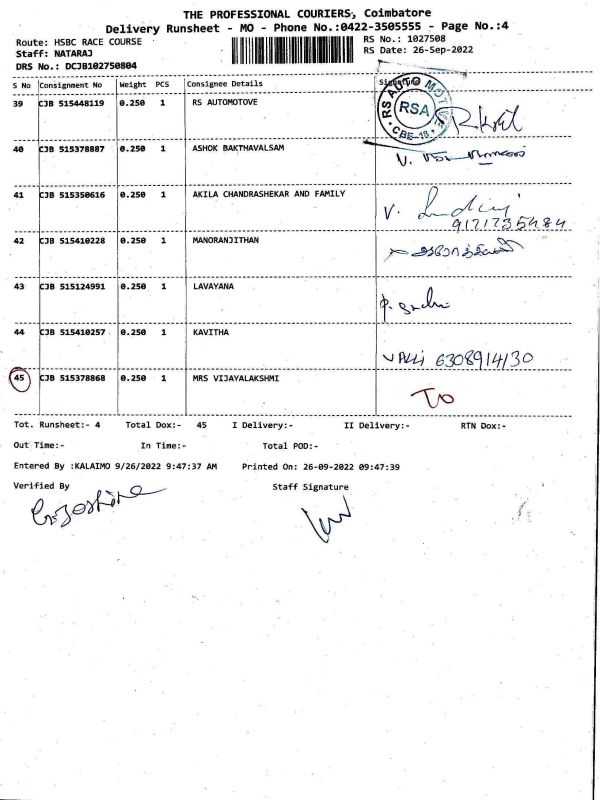 THE PROFESSIONAL COURIERS, Coimbatore
Delivery Runsheet - MO - Phone No.:0422-3505555 - Page No.:4
Route: HSBC RACE COURSE
Staff: NATARAJ
DRS No.: DCJB102750804
RS No.: 1027508
RS Date: 26-Sep-2022
S No Consignment No Weight PCS Consignee Details Signature
39 CJB 515448119 0.250 1 RS AUTOMOTOVE
RS AUTO MOTIVE
RSA
CBE-18
40 CJB 515378887 0.250 1 ASHOK BAKTHAVALSAM V.
41 CJB 515350616 0.250 1 AKILA CHANDRASHEKAR AND FAMILY V.
42 CJB 515410228 0.250 1 MANORANJITHAN
43 CJB 515124991 0.250 1 LAVAYANA
44 CJB 515410257 0.250 1 KAVITHA VALLI 6308914130
45 CJB 515378868 0.250 1 MRS VIJAYALAKSHMI TO
Tot. Runsheet:- 4 Total Dox:- 45 I Delivery:- II Delivery:- RTN Dox:-
Out Time:- In Time:- Total POD:-
Entered By :KALAIMO 9/26/2022 9:47:37 AM Printed On: 26-09-2022 09:47:39
Verified By Staff Signature